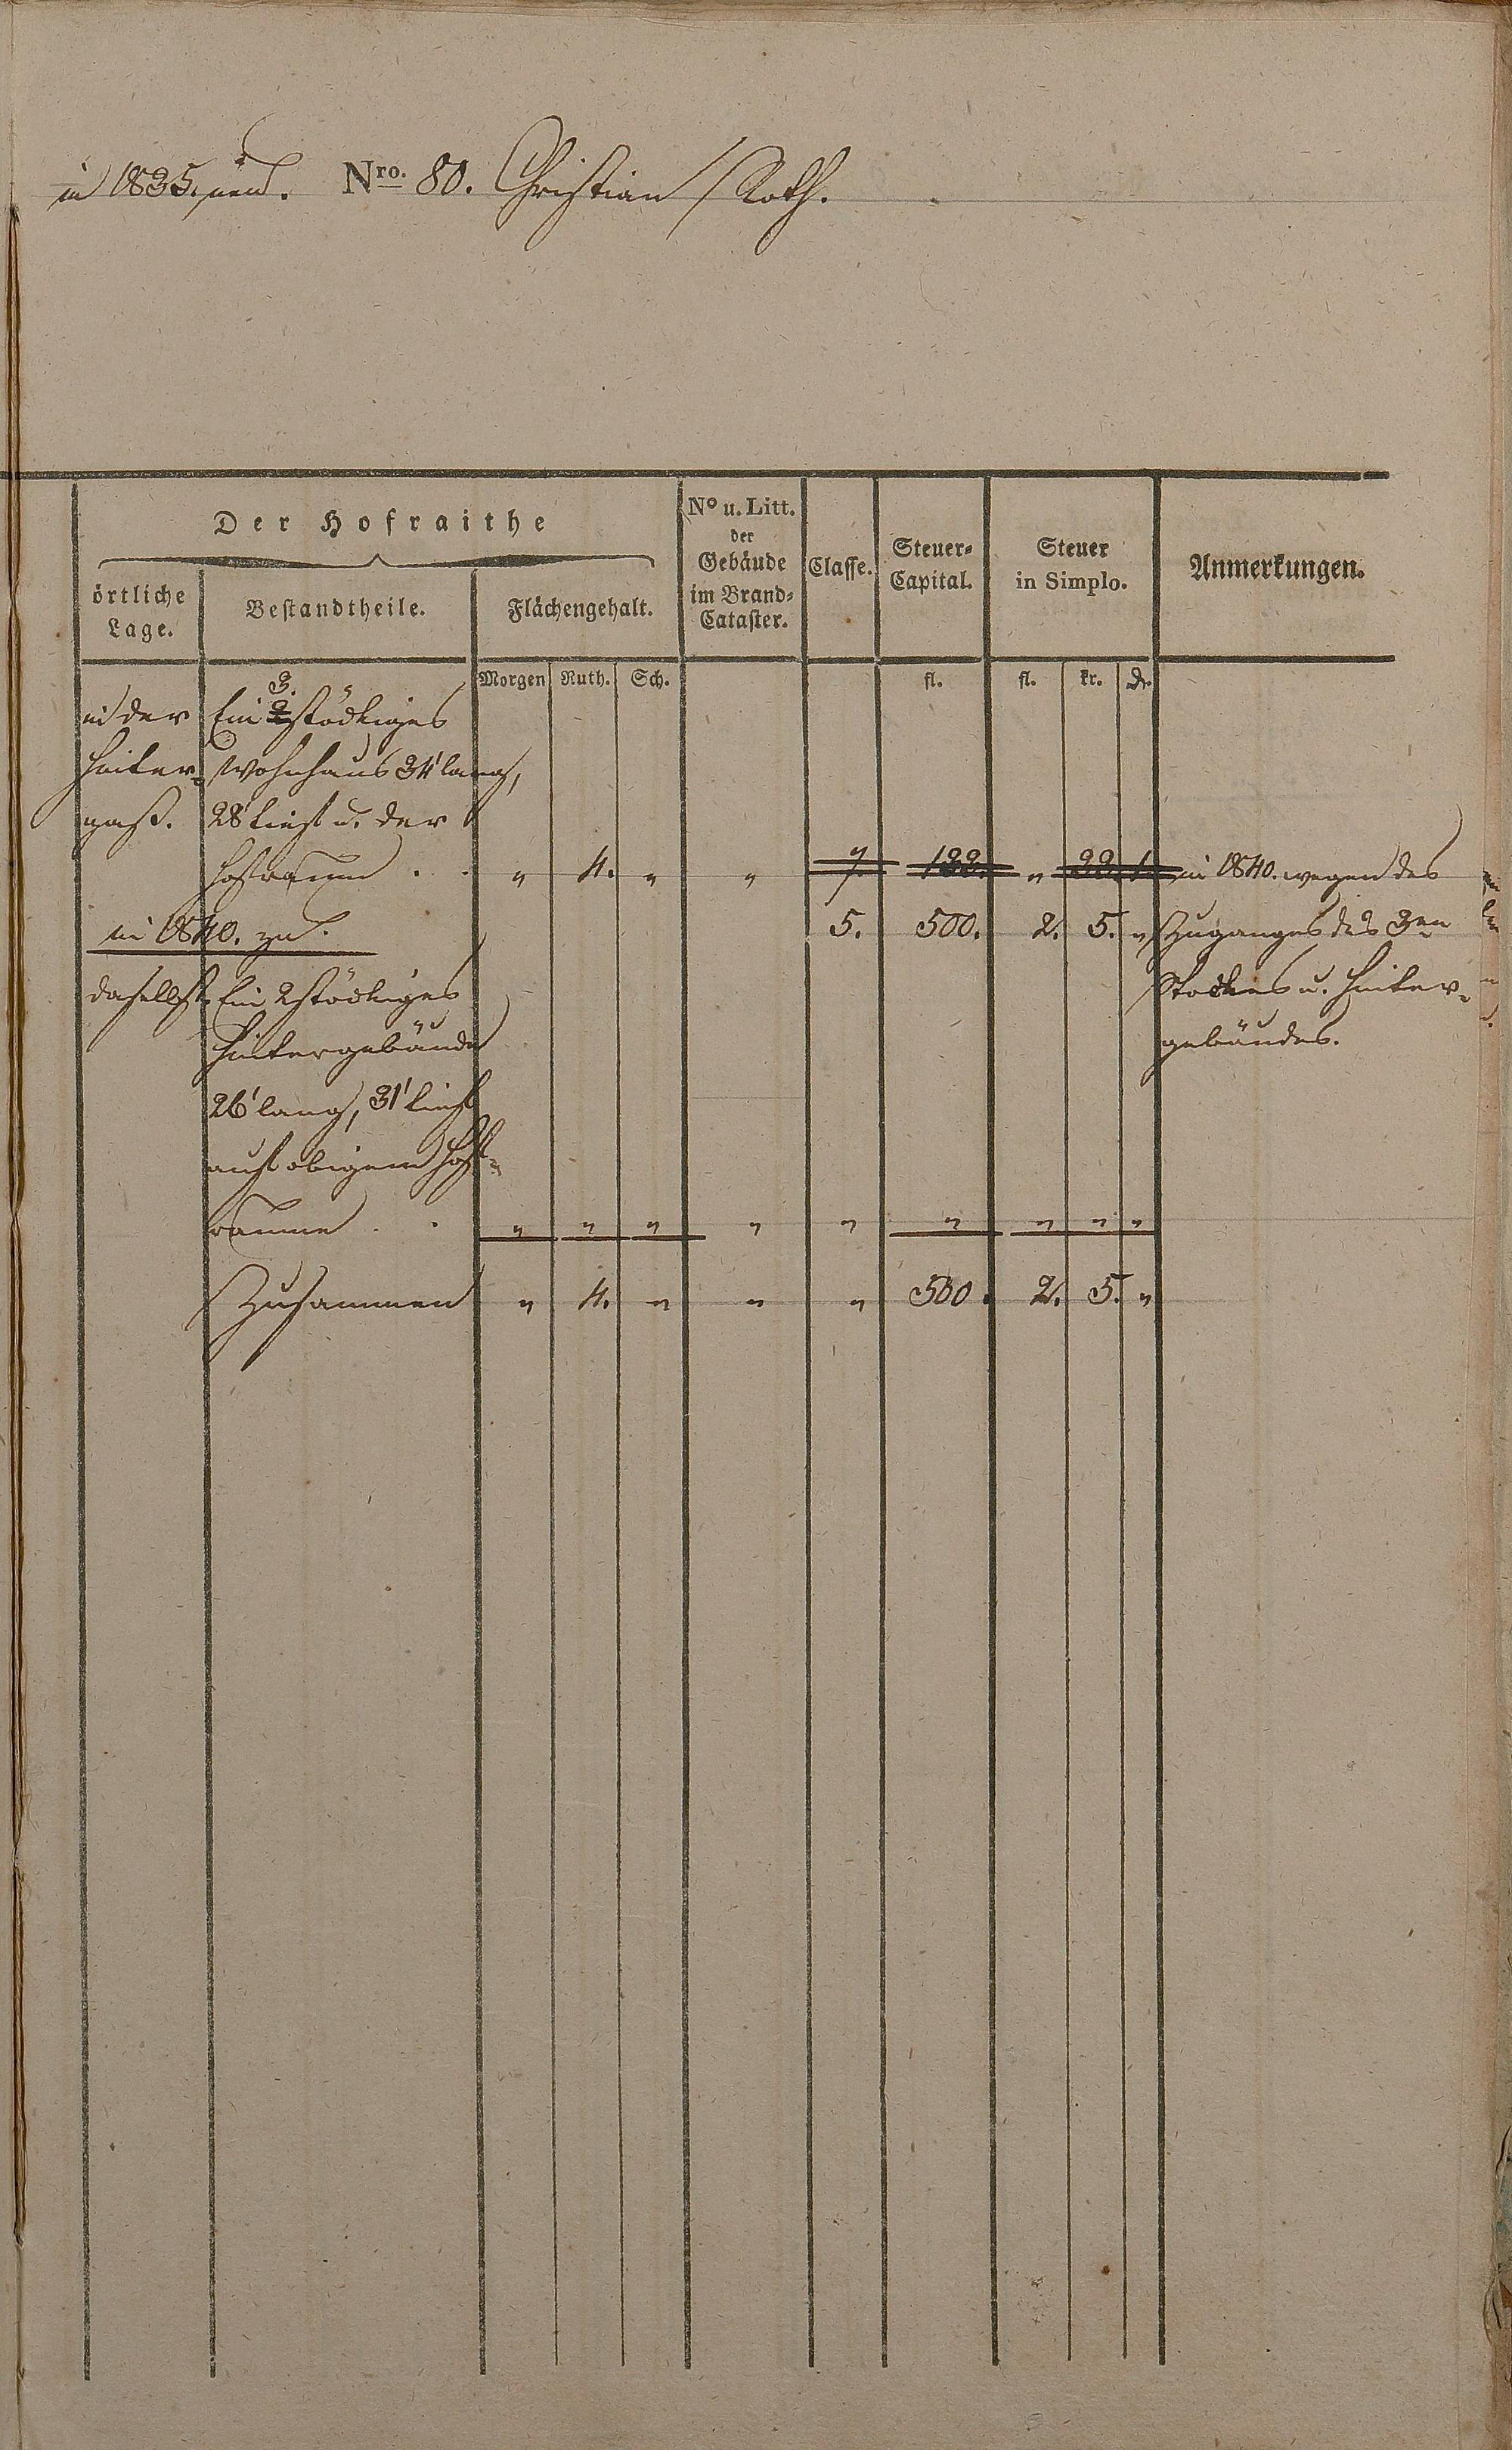 in 1835. neu. Nro. 80. Christian Roth.
Der Hofraithe
No u. Litt. der Gebäude im Brand-Cataster.
Classe.
Steuer-Capital.
Steuer in Simplo.
Anmerkungen.
örtliche Lage.
Bestandtheile.
Flächengehalt.
Morgen Ruth. Sch. fl. fl. kr. d.
3.
in der Ein 2 stöckiges
Hinter- Wohnhaus 34' lang,
gaß. 28' tief u. der
Hofraum . . " 4. " " 7. 133. " 33. 1. in 1840. wegen des
in 1840. zu. 5. 500. 2. 5. " Zuganges des 3en
daselbst. Ein 2stöckiges Stockes u. Hinter-
Hintergebäude gebäudes.
26' lang, 31' tief
auf obigem Hof-
raume . . " " " " " " " " "
Zusammen " 4. " " " 500. 2. 5. "